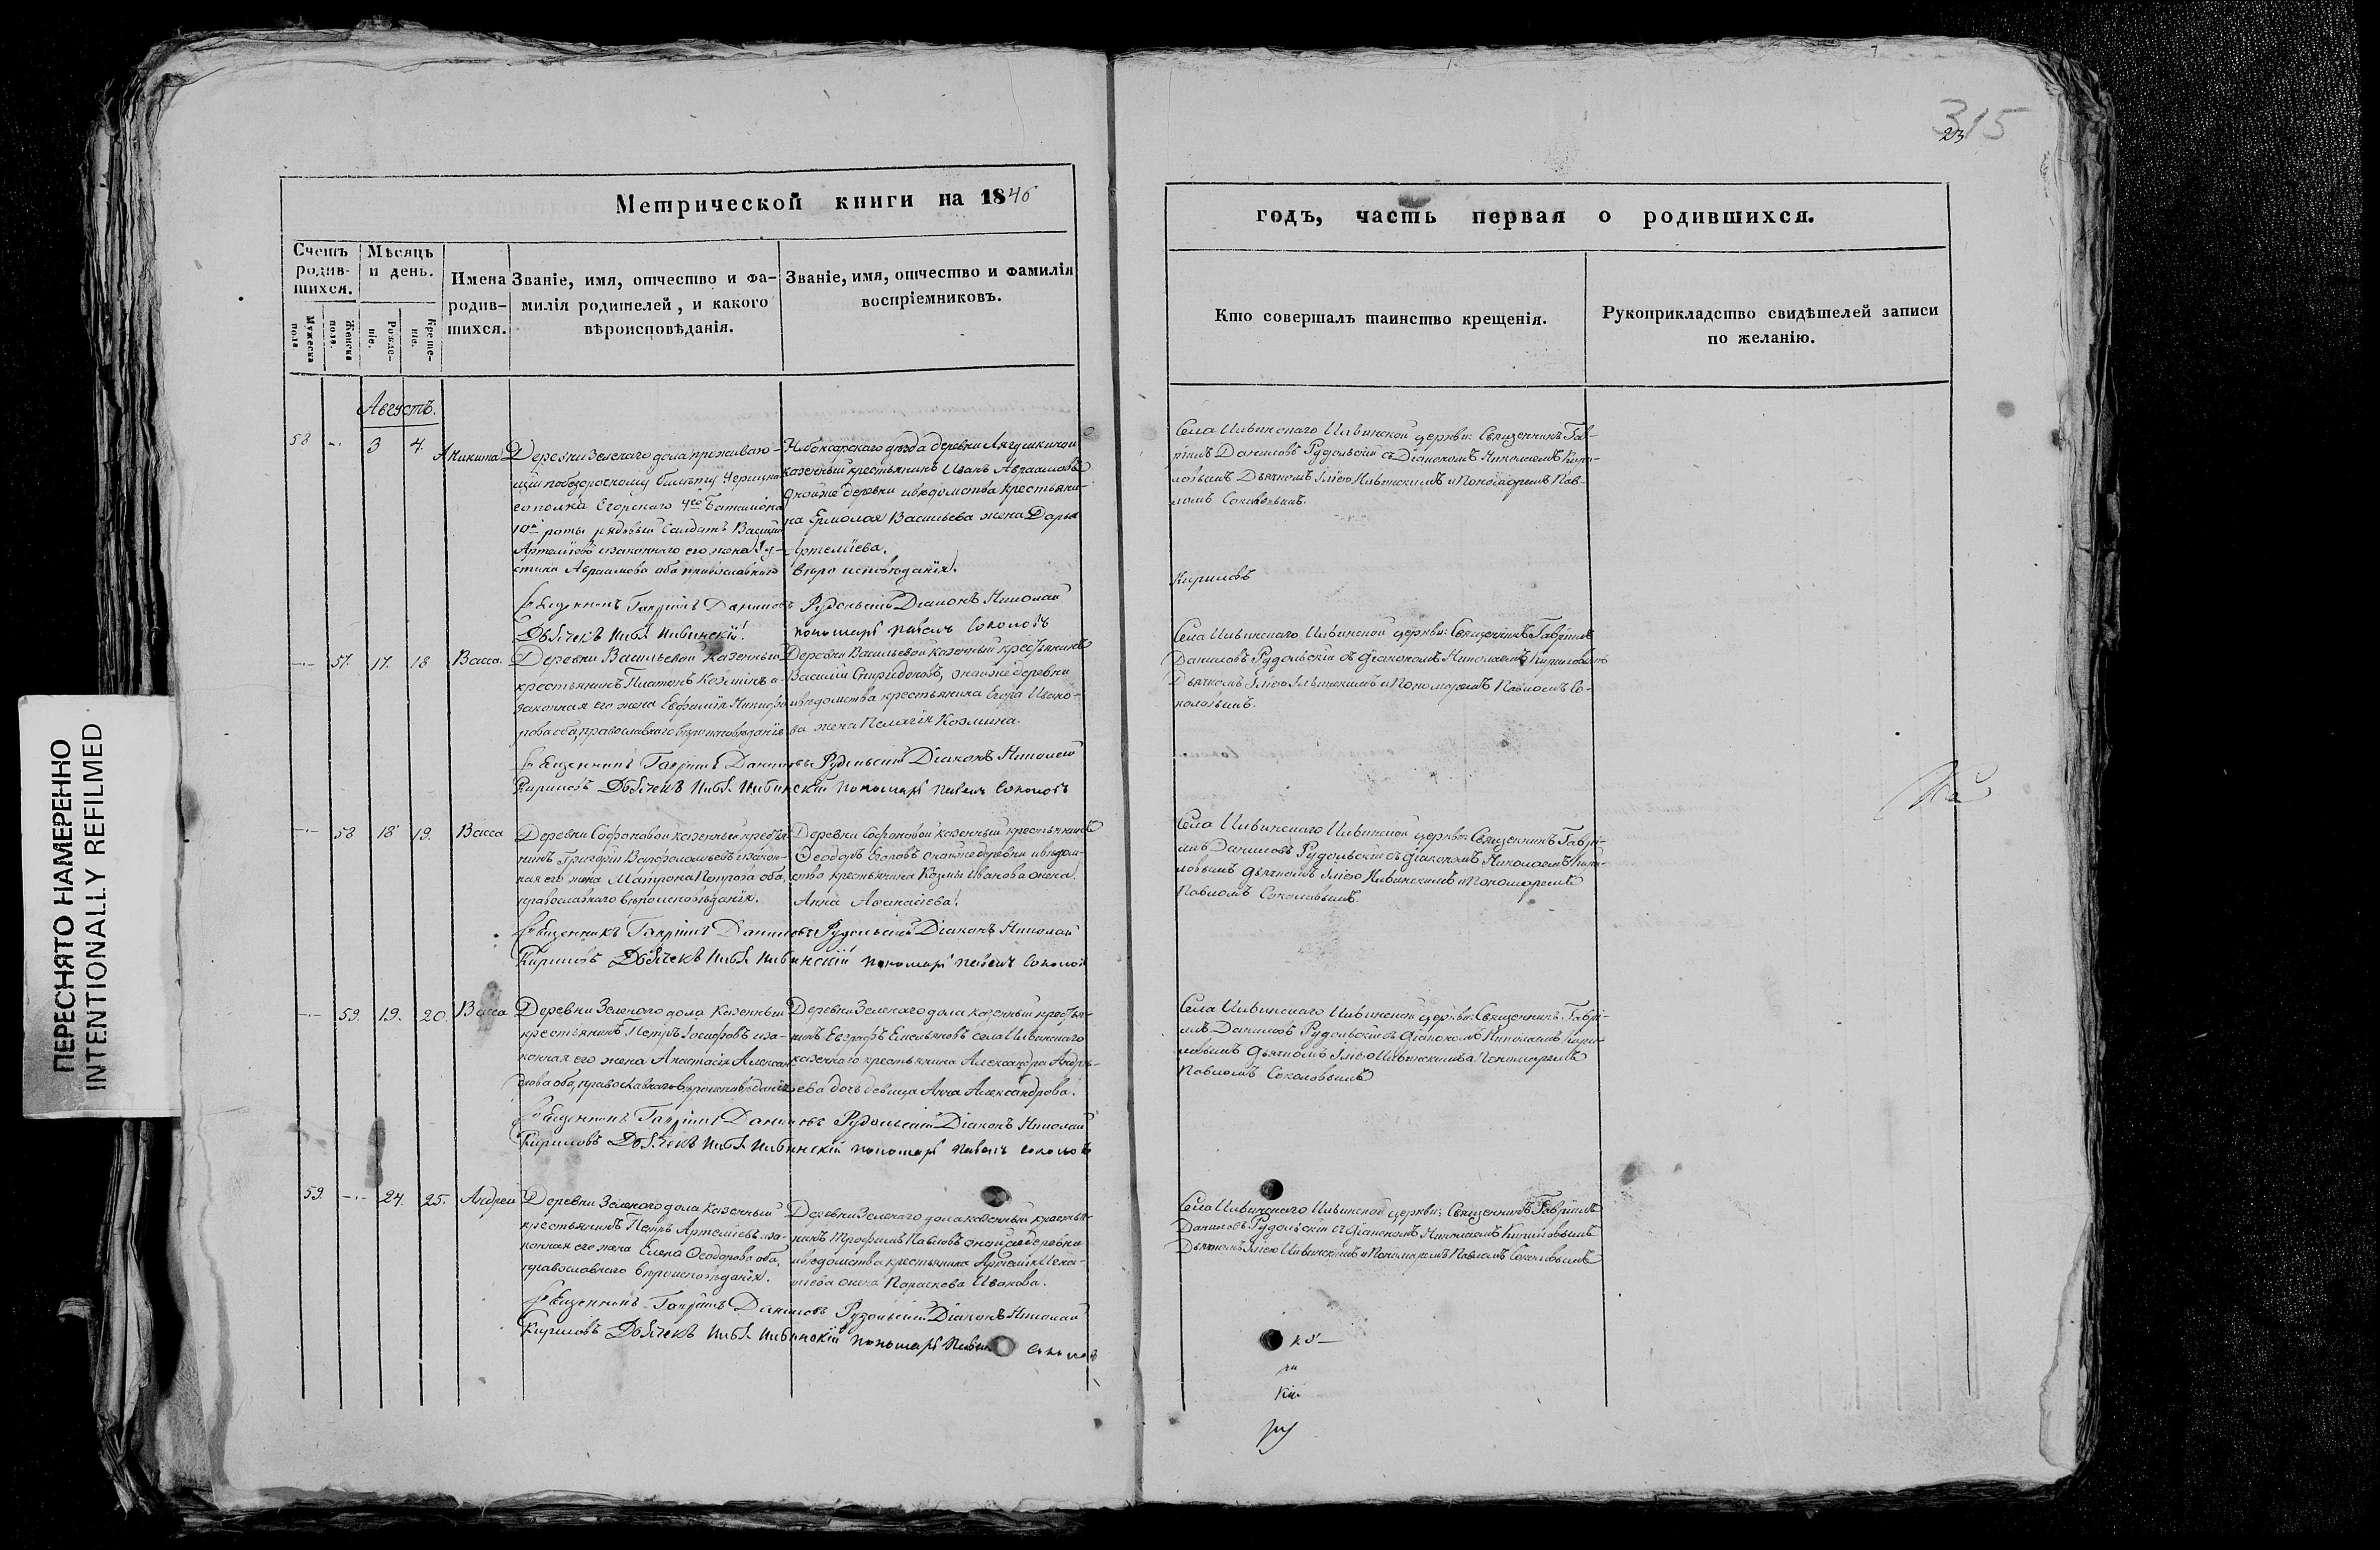 315
23
Метрической книги на 1846
годъ, часть первая о родившихся.
Счетъ родив-шихся.
Мѣсяцъ и день.
Мужеска пола
Женска пола.
Рожде-ніе.
Креще-ніе.
Имена родив-шихся.
Званіе, имя, отчество и фа-
милія родителей, и какого
вѣроисповѣданія.
Званіе, имя, отчество и фамилія
воспріемниковъ.
Кто совершалъ таинство крещенія.
Рукоприкладство свидѣтелей записи
по желанію.
Августъ.
58 3 4. Аникита
Деревни Зеленаго дола проживаю-
щій по
Егорскаго 4го Баталіона
10й роты рядовый Солдатъ Василій
Артеміевъ и законная его жена
Авраамова оба православнаго
Чебоксарскаго уѣзда деревни Лягушкиной
казенный крестьянинъ Иванъ Авраамовъ
оной же деревни и вѣдомства крестьяни-
на Ермолая Васильева жена Дарья
Артеміева.
вѣроисповѣданія.
Села Ильинскаго Ильинской церкви: Священникъ Гав-
ріилъ Даниловъ Рудольскій съ Діакономъ Николаемъ Кири-
ловымъ Дьячкомъ Иліею Ильинскимъ и Пономаремъ Пав-
ломъ Соколовымъ.
Священникъ Гавріилъ Даниловъ Рудольскій Діаконъ Николай
Кириловъ
Дьячекъ Илья Ильинскій пономарь Павелъ Соколовъ
57. 17. 18 Васса.
Деревни Васильевой казенный
крестьянинъ Платонъ Козминъ и
законная его жена Евфимія Никифо-
рова оба православнаго вѣроисповѣданія
Деревни Васильевой казенный крестьянинъ
Василій Спиридоновъ, оной же деревни
и вѣдомства крестьянина Егора Ивано-
ва жена Пелагія Козмина.
Села Ильинскаго Ильинской церкви: Священникъ Гавріилъ
Даниловъ Рудольскій съ Діакономъ Николаемъ Кириловымъ
Дьячкомъ Иліею Ильинскимъ и Пономаремъ Павломъ Со-
коловымъ.
Священникъ Гавріилъ Даниловъ Рудольскій Діаконъ Николай
Кириловъ Дьячекъ Илья Ильинскій пономарь Павелъ Соколовъ
58 18 19. Васса
Деревни Софоновой казенный крестья-
нинъ Григорій Варфоломеевъ и закон-
ная его жена Матрона Петрова оба
православнаго вѣроисповѣданія.
Деревни Софоновой казенный крестьянинъ
Ѳеодоръ Егоровъ оной же деревни и вѣдом-
ства крестьянина Козмы Иванова жена
Анна Аѳанасіева.
Села Ильинскаго Ильинской церкви: Священникъ Гаврі-
илъ Даниловъ Рудольскій съ Діакономъ Николаемъ Кири-
ловымъ Дьячкомъ Иліею Ильинскимъ и Пономаремъ
Павломъ Соколовымъ.
Священникъ Гавріилъ Даниловъ Рудольскій Діаконъ Николай
Кириловъ Дьячекъ Илья Ильинскій пономарь Павелъ Соколовъ
59. 19. 20. Васса
Деревни Зеленого дола казенный
крестьянинъ Петръ Іосифовъ и за-
конная его жена Анастасія Алексан-
дрова оба, православнаго вѣроисповѣданія
Деревни Зеленаго дола казенный крестья-
нинъ Евграфъ Емельяновъ села Ильинскаго
казеннаго крестьянина Александра Андре-
ева дочь девица Анна Александрова.
Села Ильинскаго Ильинской церкви: Священникъ Гаврі-
илъ Даниловъ Рудольскій съ Діакономъ Николаемъ Кири-
ловымъ Дьячкомъ Иліею Ильинскимъ и Пономаремъ
Павломъ Соколовымъ
Священникъ Гавріилъ Даниловъ Рудольскій Діаконъ Николай
Кириловъ Дьячекъ Илья Ильинскій пономарь Павелъ Соколовъ
59. 24. 25. Андрей
Деревни Зеленого дола казенный
крестьянинъ Петръ Артеміевъ и за-
конная его жена Елена Ѳеодорова оба,
православнаго вѣроисповѣданія.
Деревни Зеленаго дола казенный крестья-
нинъ Трофимъ Павловъ оной же деревни
и вѣдомства крестьянина Артемія Игна-
тіева жена Параскева Иванова.
Села Ильинскаго Ильинской церкви: Священникъ Гавріилъ
Даниловъ Рудольскій съ Діакономъ Николаемъ Кириловымъ
Дьячкомъ Иліею Ильинскимъ и Пономаремъ Павломъ Соколовымъ
Священникъ Гавріилъ Даниловъ Рудольскій Діаконъ Николай
Кириловъ Дьячекъ Илья Ильинскій пономарь Павелъ Соколовъ
ПЕРЕСНЯТО НАМЕРЕННО
INTENTIONALLY REFILMED